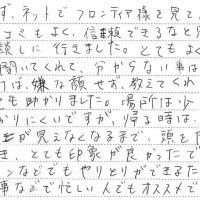 ず、ネットでフロンティア様を見て、
コミもよく、信頼できるなと思
談しに行きました。とてもよく
聞いてくれて、分からない事は
けば嫌な顔せず、教えてくれ
ても助かりました。場所は少
かりにくいですが、帰る時は、
姿が見えなくなるまで、頭を
き、とても印象が良かったで
ンなどでもやりとりができた
事などで忙しい人でもオススメで